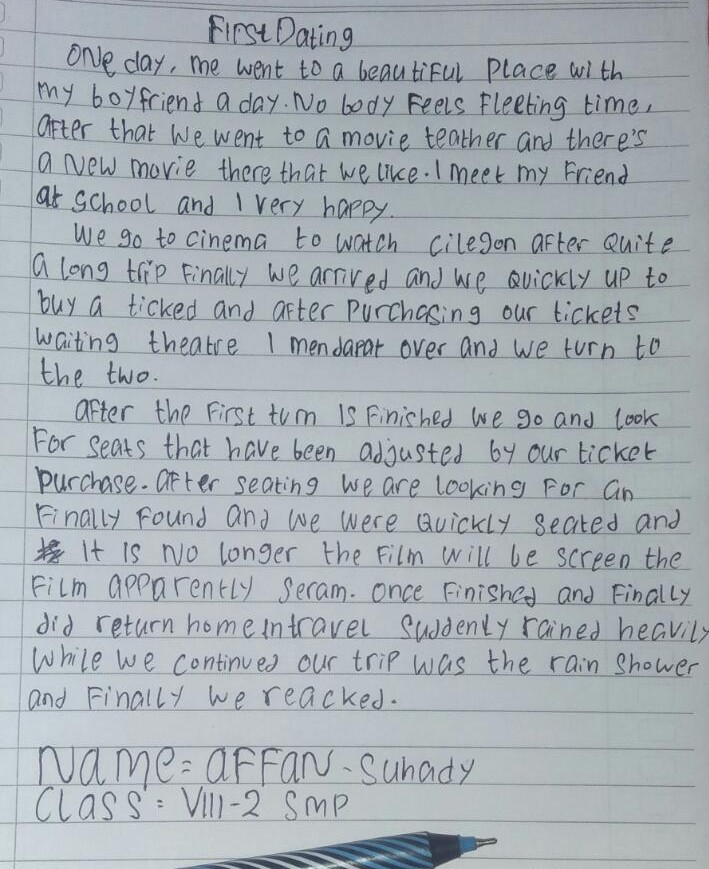 First Dating
One day, me went to a beautiful place with
my boyfriend a day. No body feels fleeting time,
after that we went to a movie teather and there's
a new movie there that we like. I meet my friend
at school and I very happy.
We go to cinema to watch cilegon after quite
a long trip finally we arrived and we quickly up to
buy a ticked and after purchasing our tickets
waiting theatre I mendapat over and we turn to
the two.
after the first turn is finished we go and look
for seats that have been adjusted by our ticket
purchase. after seating we are looking for an
finally found and we were quickly seated and
it is no longer the film will be screen the
film apparently seram. once finished and finally
did return home in travel suddenly rained heavily
while we continued our trip was the rain shower
and finally we reacked.
Name = AFFAN - Suhady
Class : VIII-2 SMP